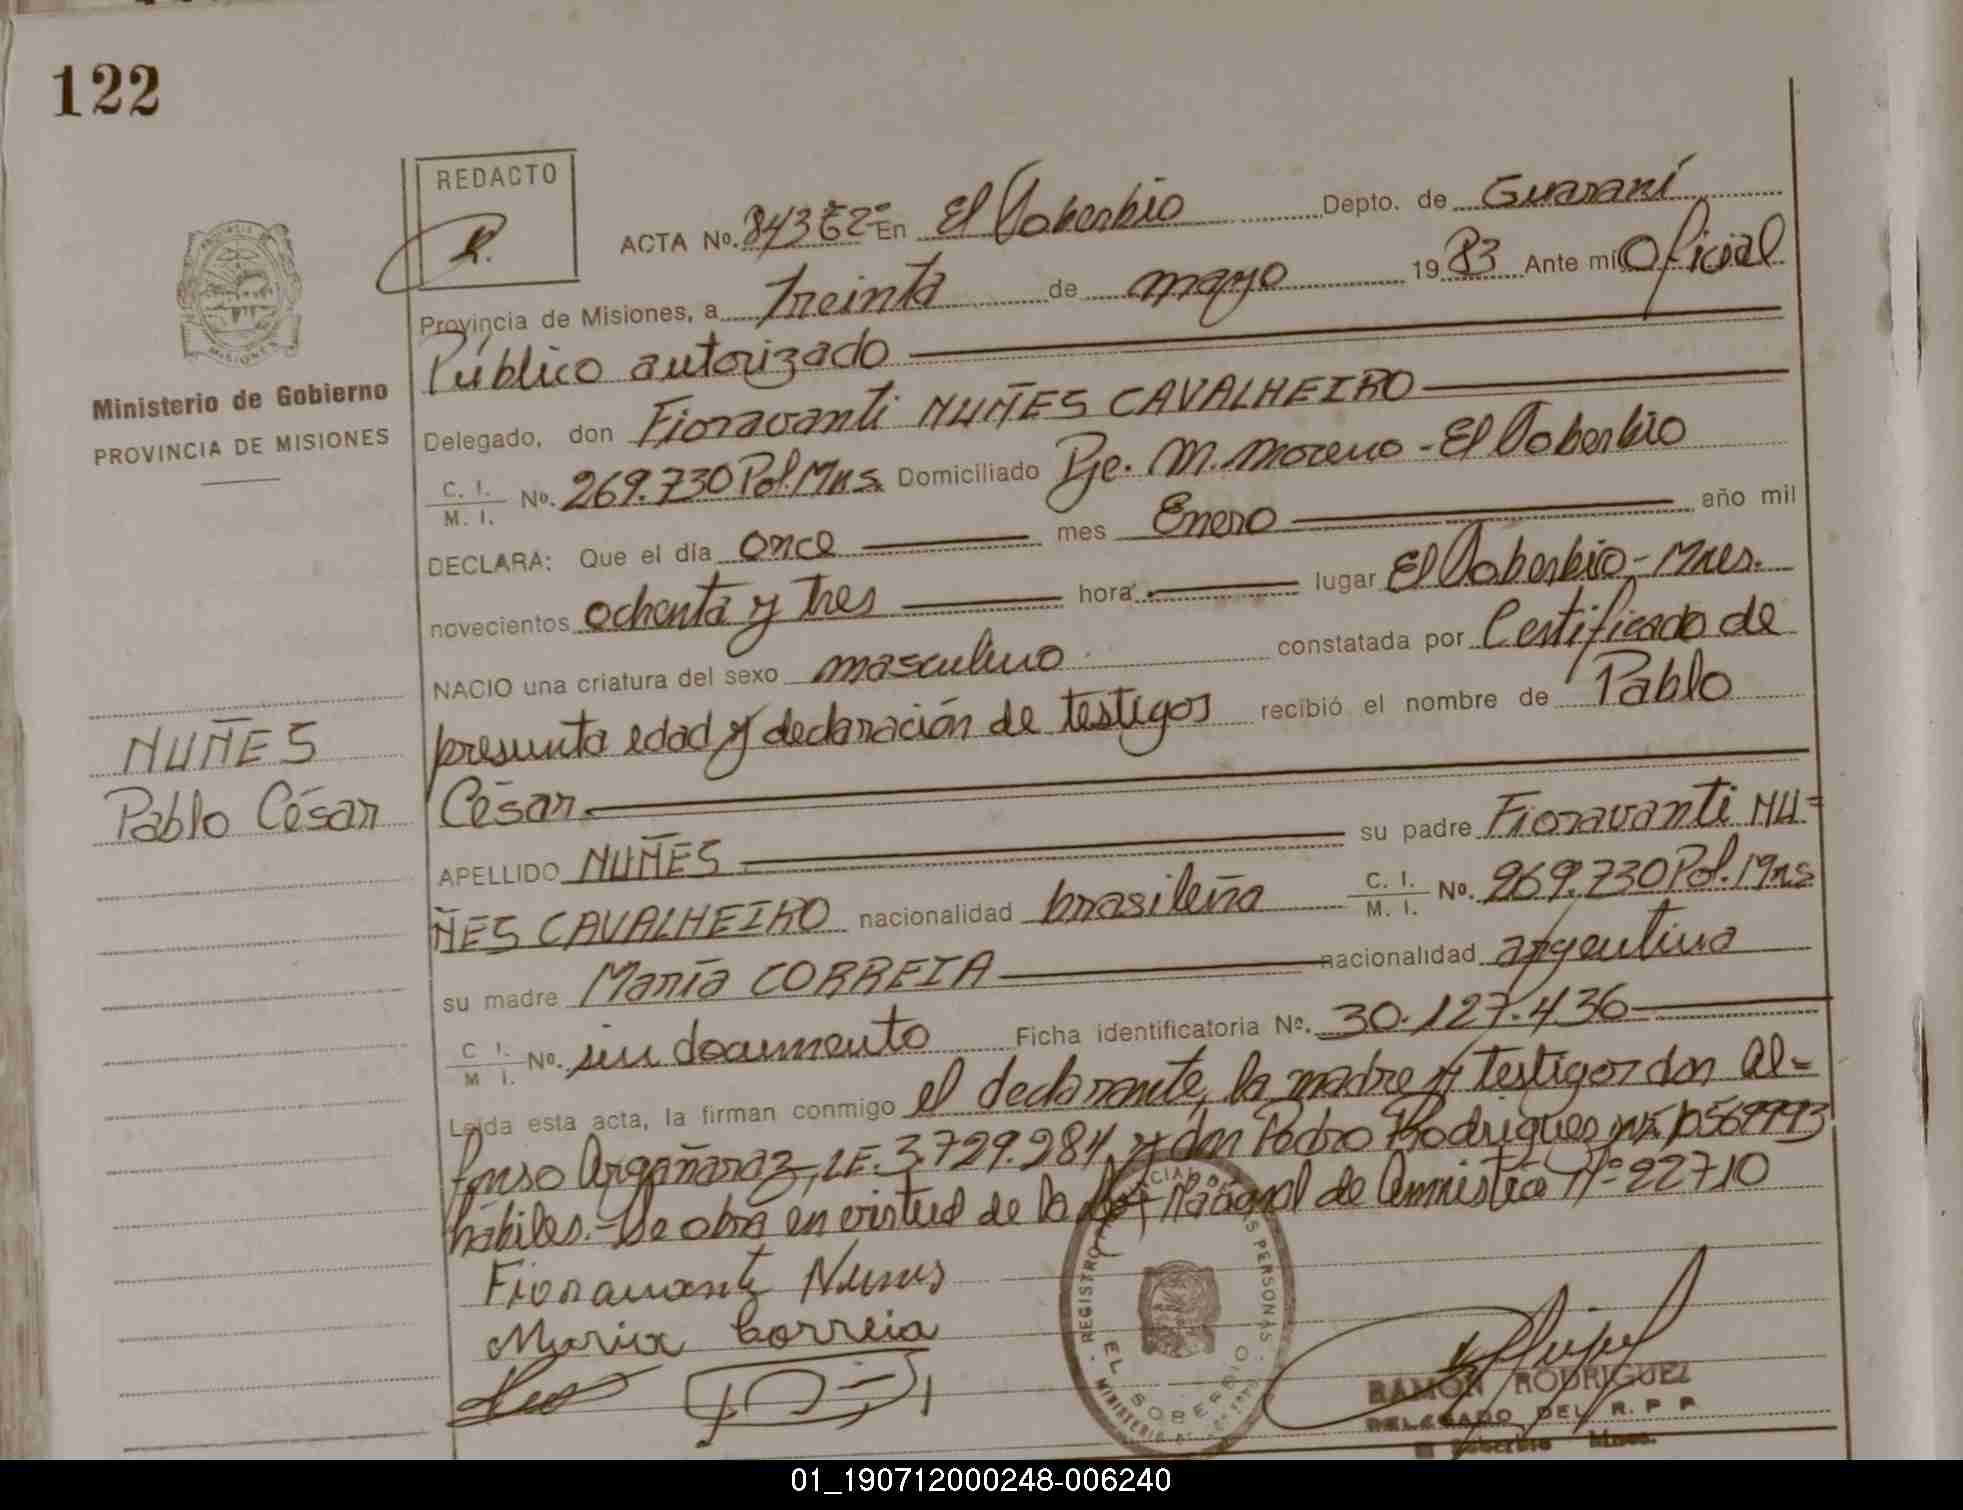 122
REDACTO
R.
ACTA No. 843 Tº 2º En El Soberbio Depto. de Guaraní
Provincia de Misiones, a treinta de mayo 1983 Ante mi Oficial
Público autorizado
Delegado, don Fioravanti NUÑES CAVALHEIRO
C. I. M. I. No. 269.730 Pol. Mns. Domiciliado Pje. M. Moreno - El Soberbio
DECLARA: Que el día once mes Enero año mil
novecientos ochenta y tres hora lugar El Soberbio - Mnes.
NACIO una criatura del sexo masculino constatada por Certificado de
presunta edad y declaración de testigos recibió el nombre de Pablo
César
APELLIDO NUÑES su padre Fioravanti NU=
ÑES CAVALHEIRO nacionalidad brasileña C. I. M. I. No. 269.730 Pol. Mns
su madre María CORREIA nacionalidad argentina
C. I. M. I. No. sin documento Ficha identificatoria No. 30.127.436
Leida esta acta, la firman conmigo el declarante, la madre y testigos don Al=
fonso Argañaraz, LE. 3.729.284 y don Pedro Rodrigues
hábiles.- Se obra en virtud de la Ley Nacional de Amnistía Nº 22710
Fioravante Nunes
Maria Correia
Ministerio de Gobierno
PROVINCIA DE MISIONES
NUÑES
Pablo César
PROVINCIA DE
MISIONES
REGISTRO PROVINCIAL DE LAS PERSONAS
EL SOBERBIO
MINISTERIO
RAMÓN RODRIGUEZ
DELEGADO DEL R. P. P.
El Soberbio Mnes.
01_190712000248-006240